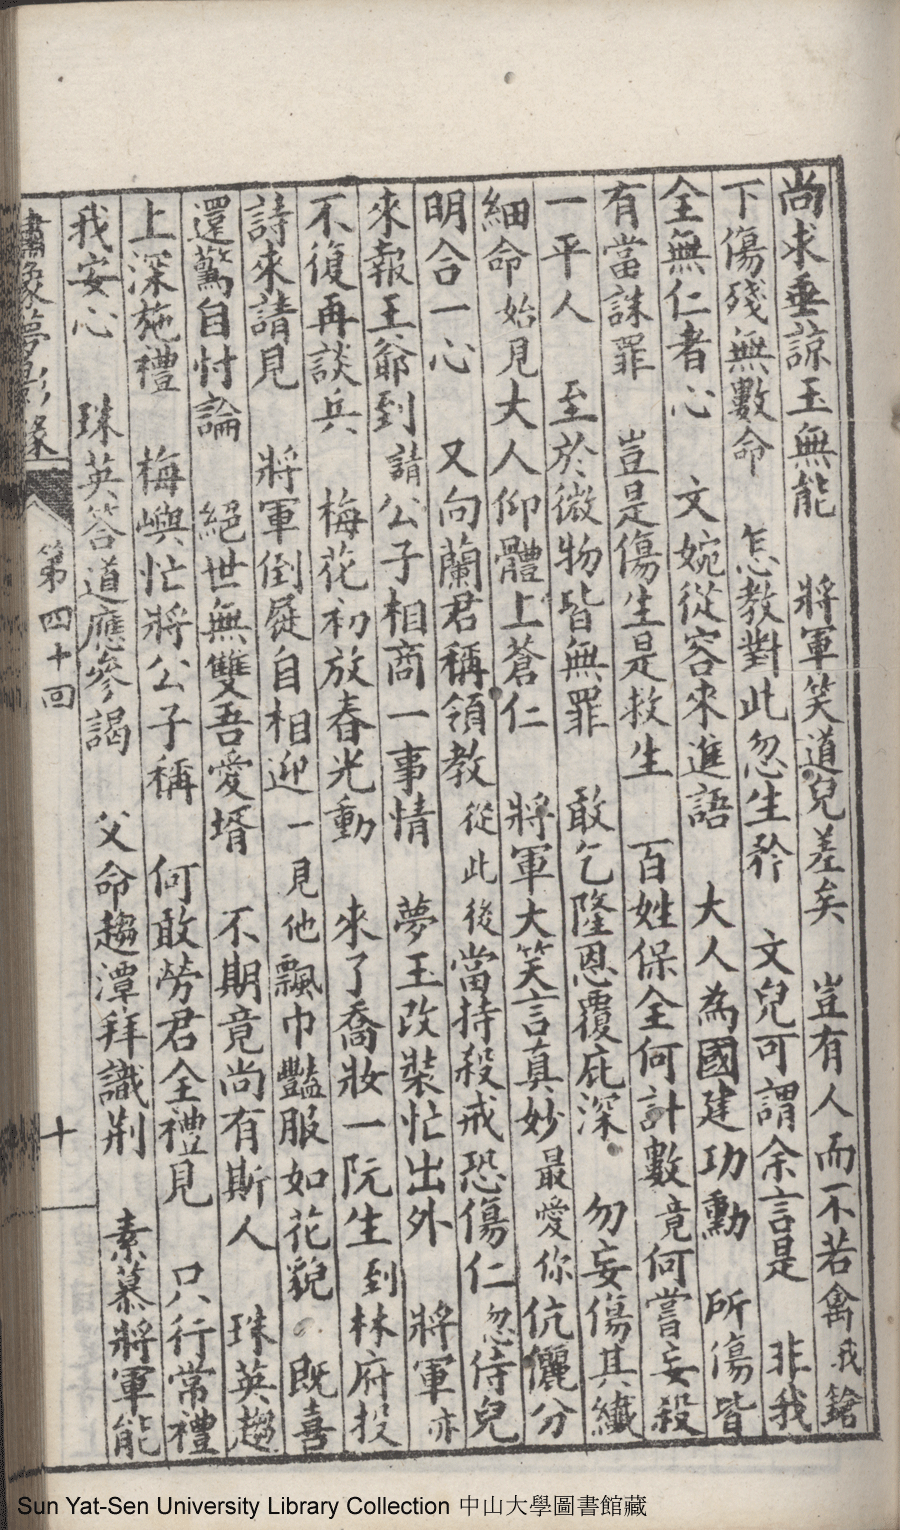 尚求垂諒玉無能　將軍笑道兒差矣　豈有人而不若禽　我鎗
下傷殘無數命　怎教對此忽生矜　文兒可謂余言是　非我
全無仁者心　文婉從容來進語　大人為國建功勳　所傷皆
有當誅罪　豈是傷生是救生　百姓保全何計數　竟何嘗妄殺
一平人　至於微物皆無罪　敢乞隆恩覆庇深　勿妄傷其纖
細命　始見大人仰體上蒼仁　將軍大笑言真妙　最愛你伉儷分
明合一心　又向蘭君稱領教　從此後當持殺戒恐傷仁　忽侍兒
來報王爺到　請公子相商一事情　夢玉改裝忙出外　將軍亦
不復再談兵　梅花初放春光動　來了喬妝一阮生　到林府投
詩來請見　將軍倒屣自相迎　一見他飄巾豔服如花貌　既喜
還驚自忖論　絕世無雙吾愛壻　不期竟尚有斯人　珠英趨
上深施禮　梅嶼忙將公子稱　何敢勞君全禮見　只行常禮
我安心　珠英答道應參謁　父命趨潭拜識荊　素慕將軍能
夢影緣
第四十回
十
Sun Yat-Sen University Library Collection 中山大學圖書館藏